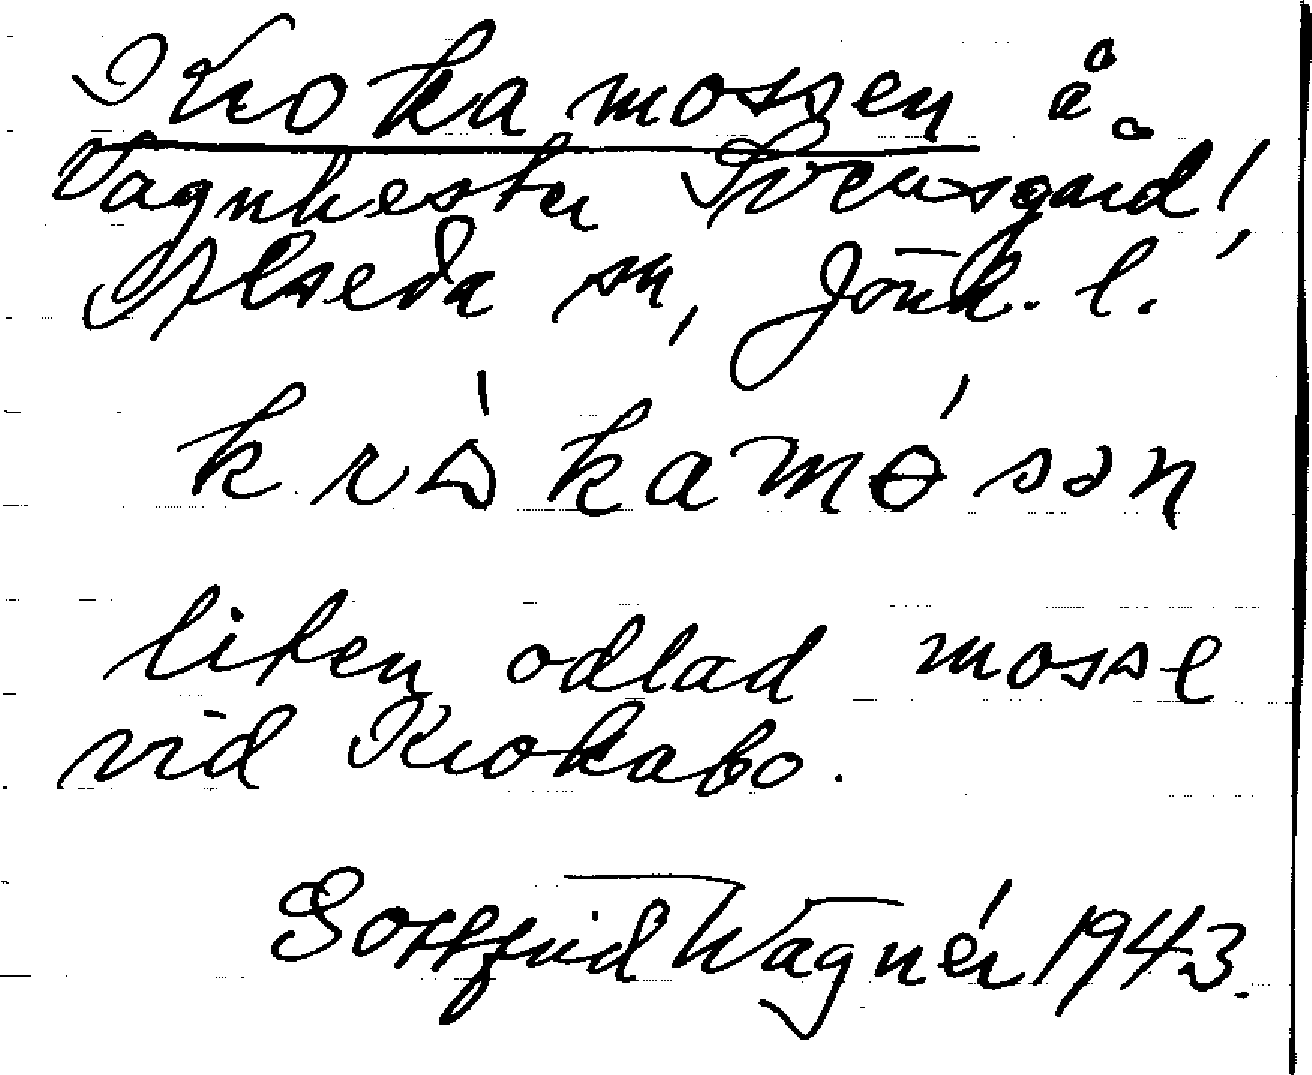 Krokamossen å.
Vagnhester Svensgård,
Alseda sn, Jönk. l.
kròkamósən
liten odlad mosse
vid Krokabo.
Gottfrid Wagnér 1943.